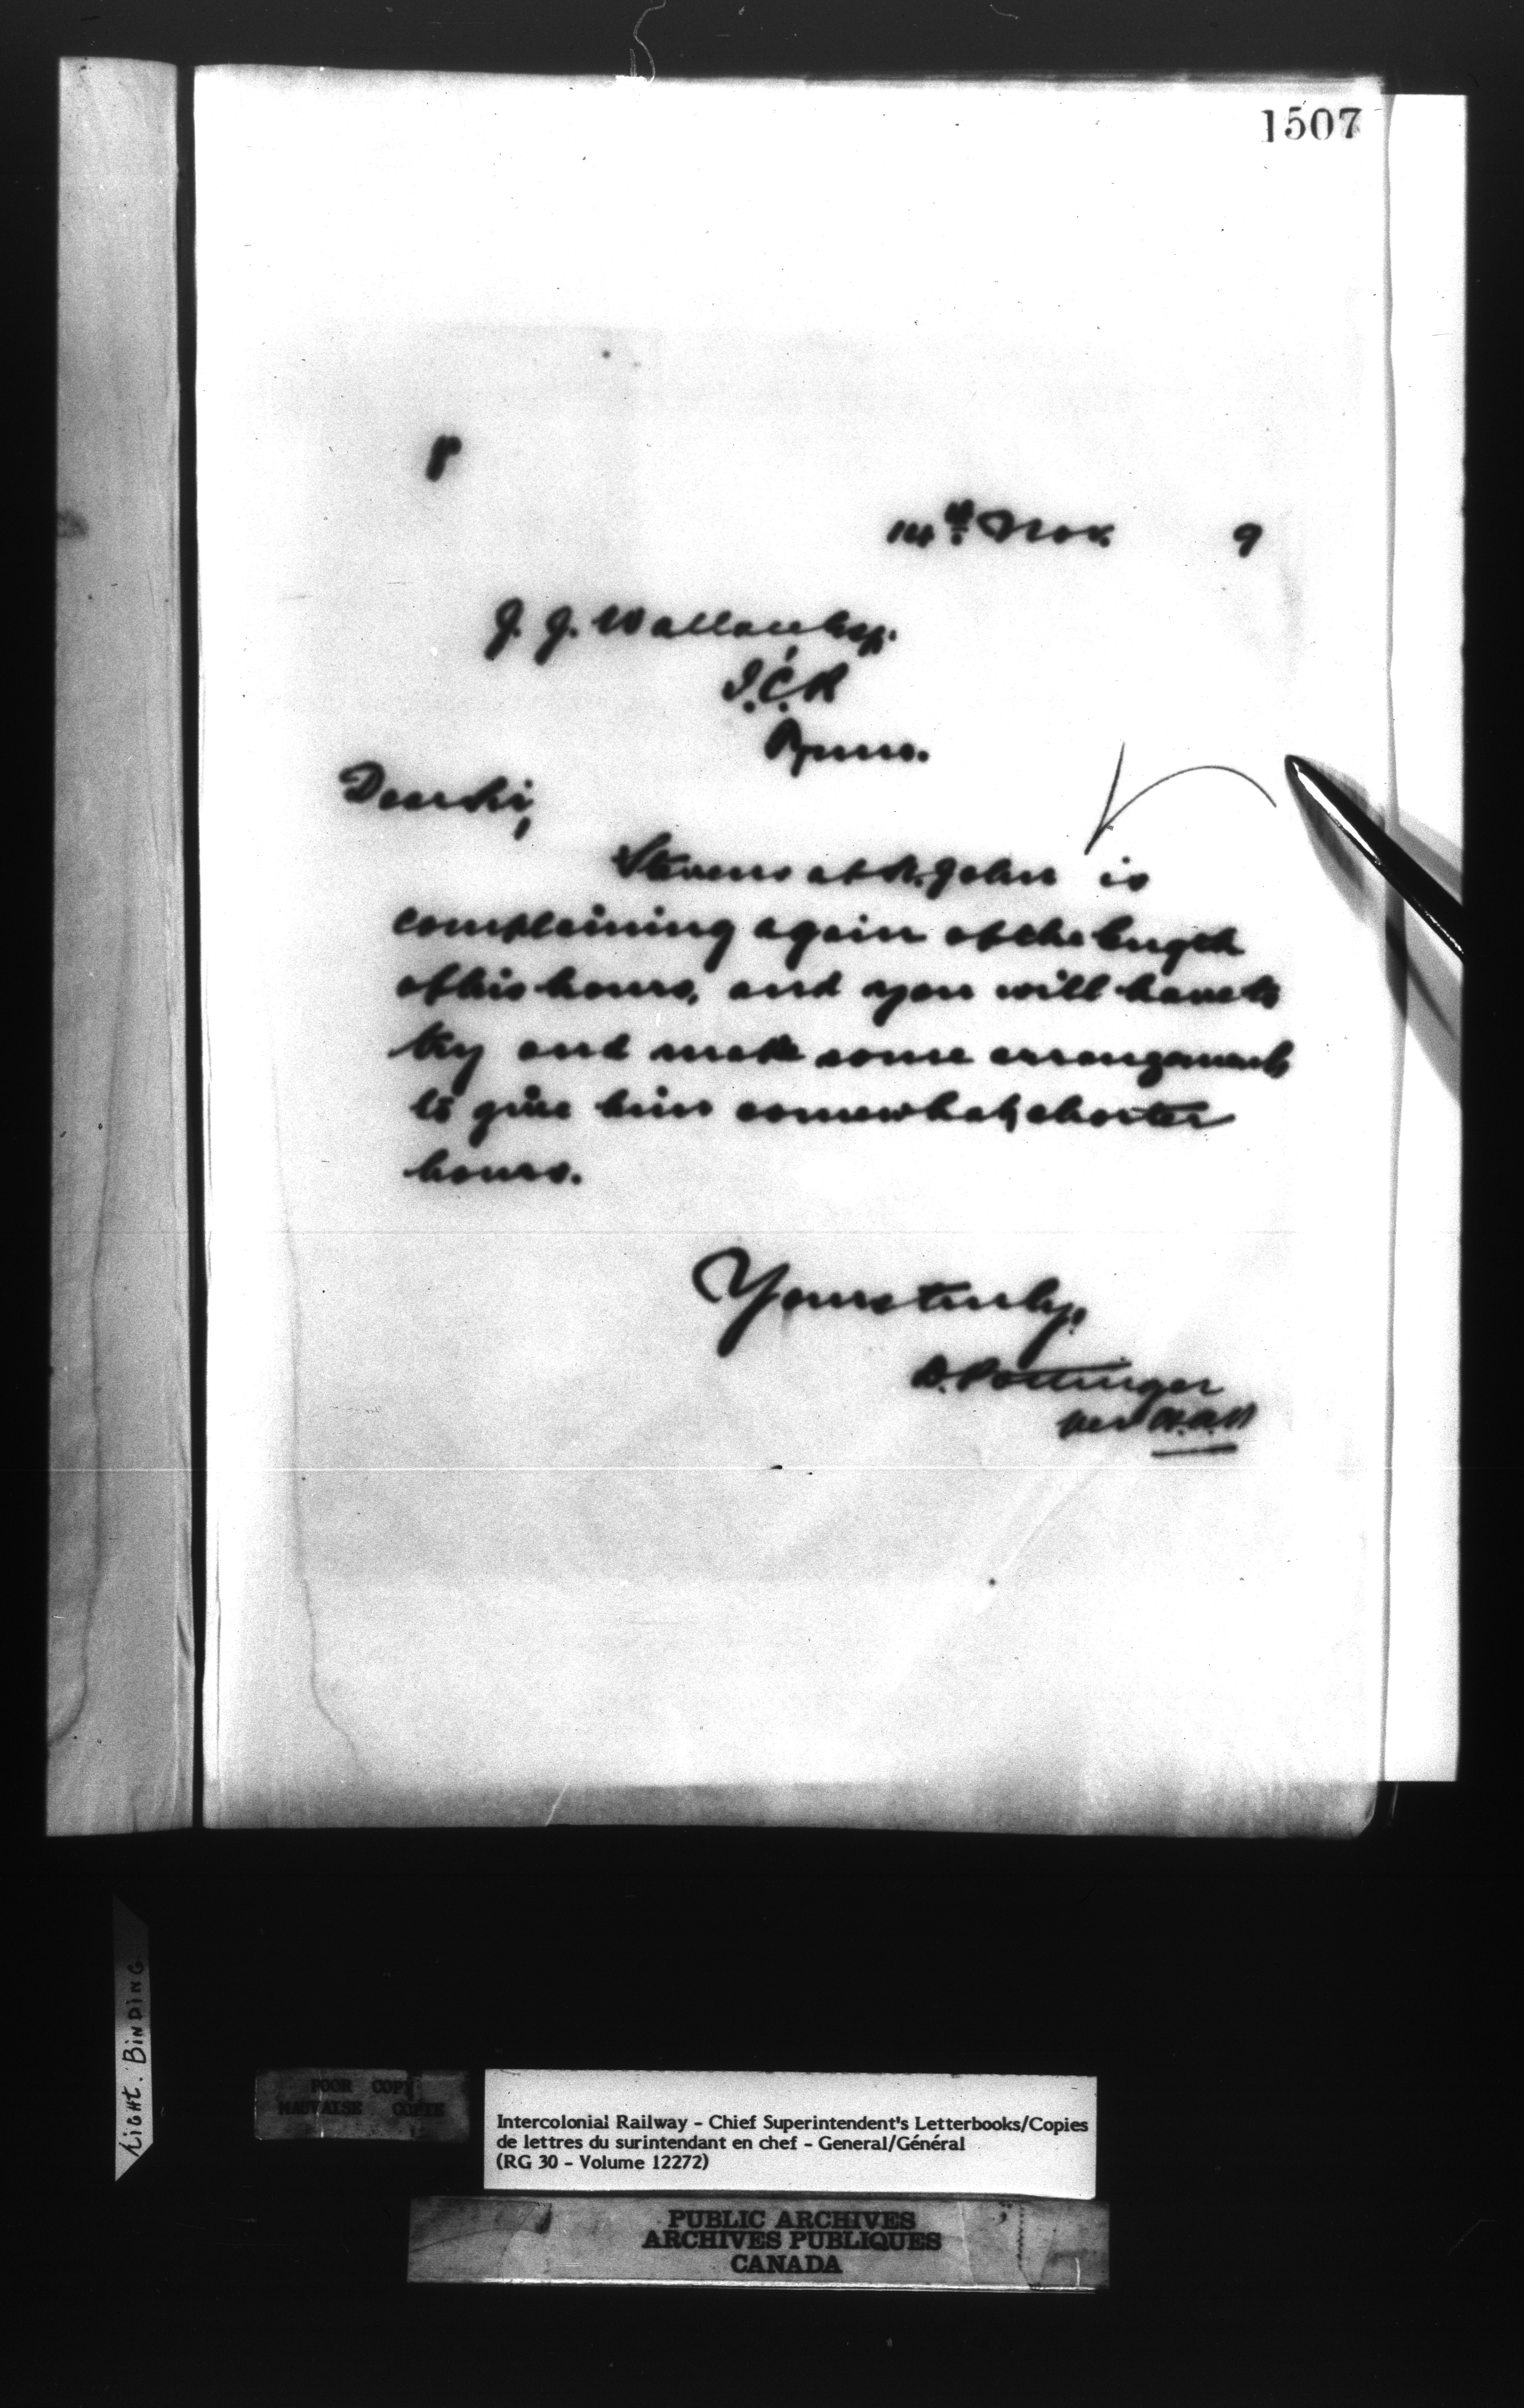 1507
14th Nov. 9
J. J. Wallace Esq.
I.C.R
Dear Sir,
Stevens at St. John is
complaining again of the length
of his hours, and you will have to
try and make some arrangements
to give him somewhat shorter
hours.
Yours truly,
D. Pottinger
per
Light. BINDING
POOR COPY
MAUVAISE COPIE
Intercolonial Railway - Chief Superintendent's Letterbooks/Copies
de lettres du surintendant en chef - General/Général
(RG 30 - Volume 12272)
PUBLIC ARCHIVES
ARCHIVES PUBLIQUES
CANADA